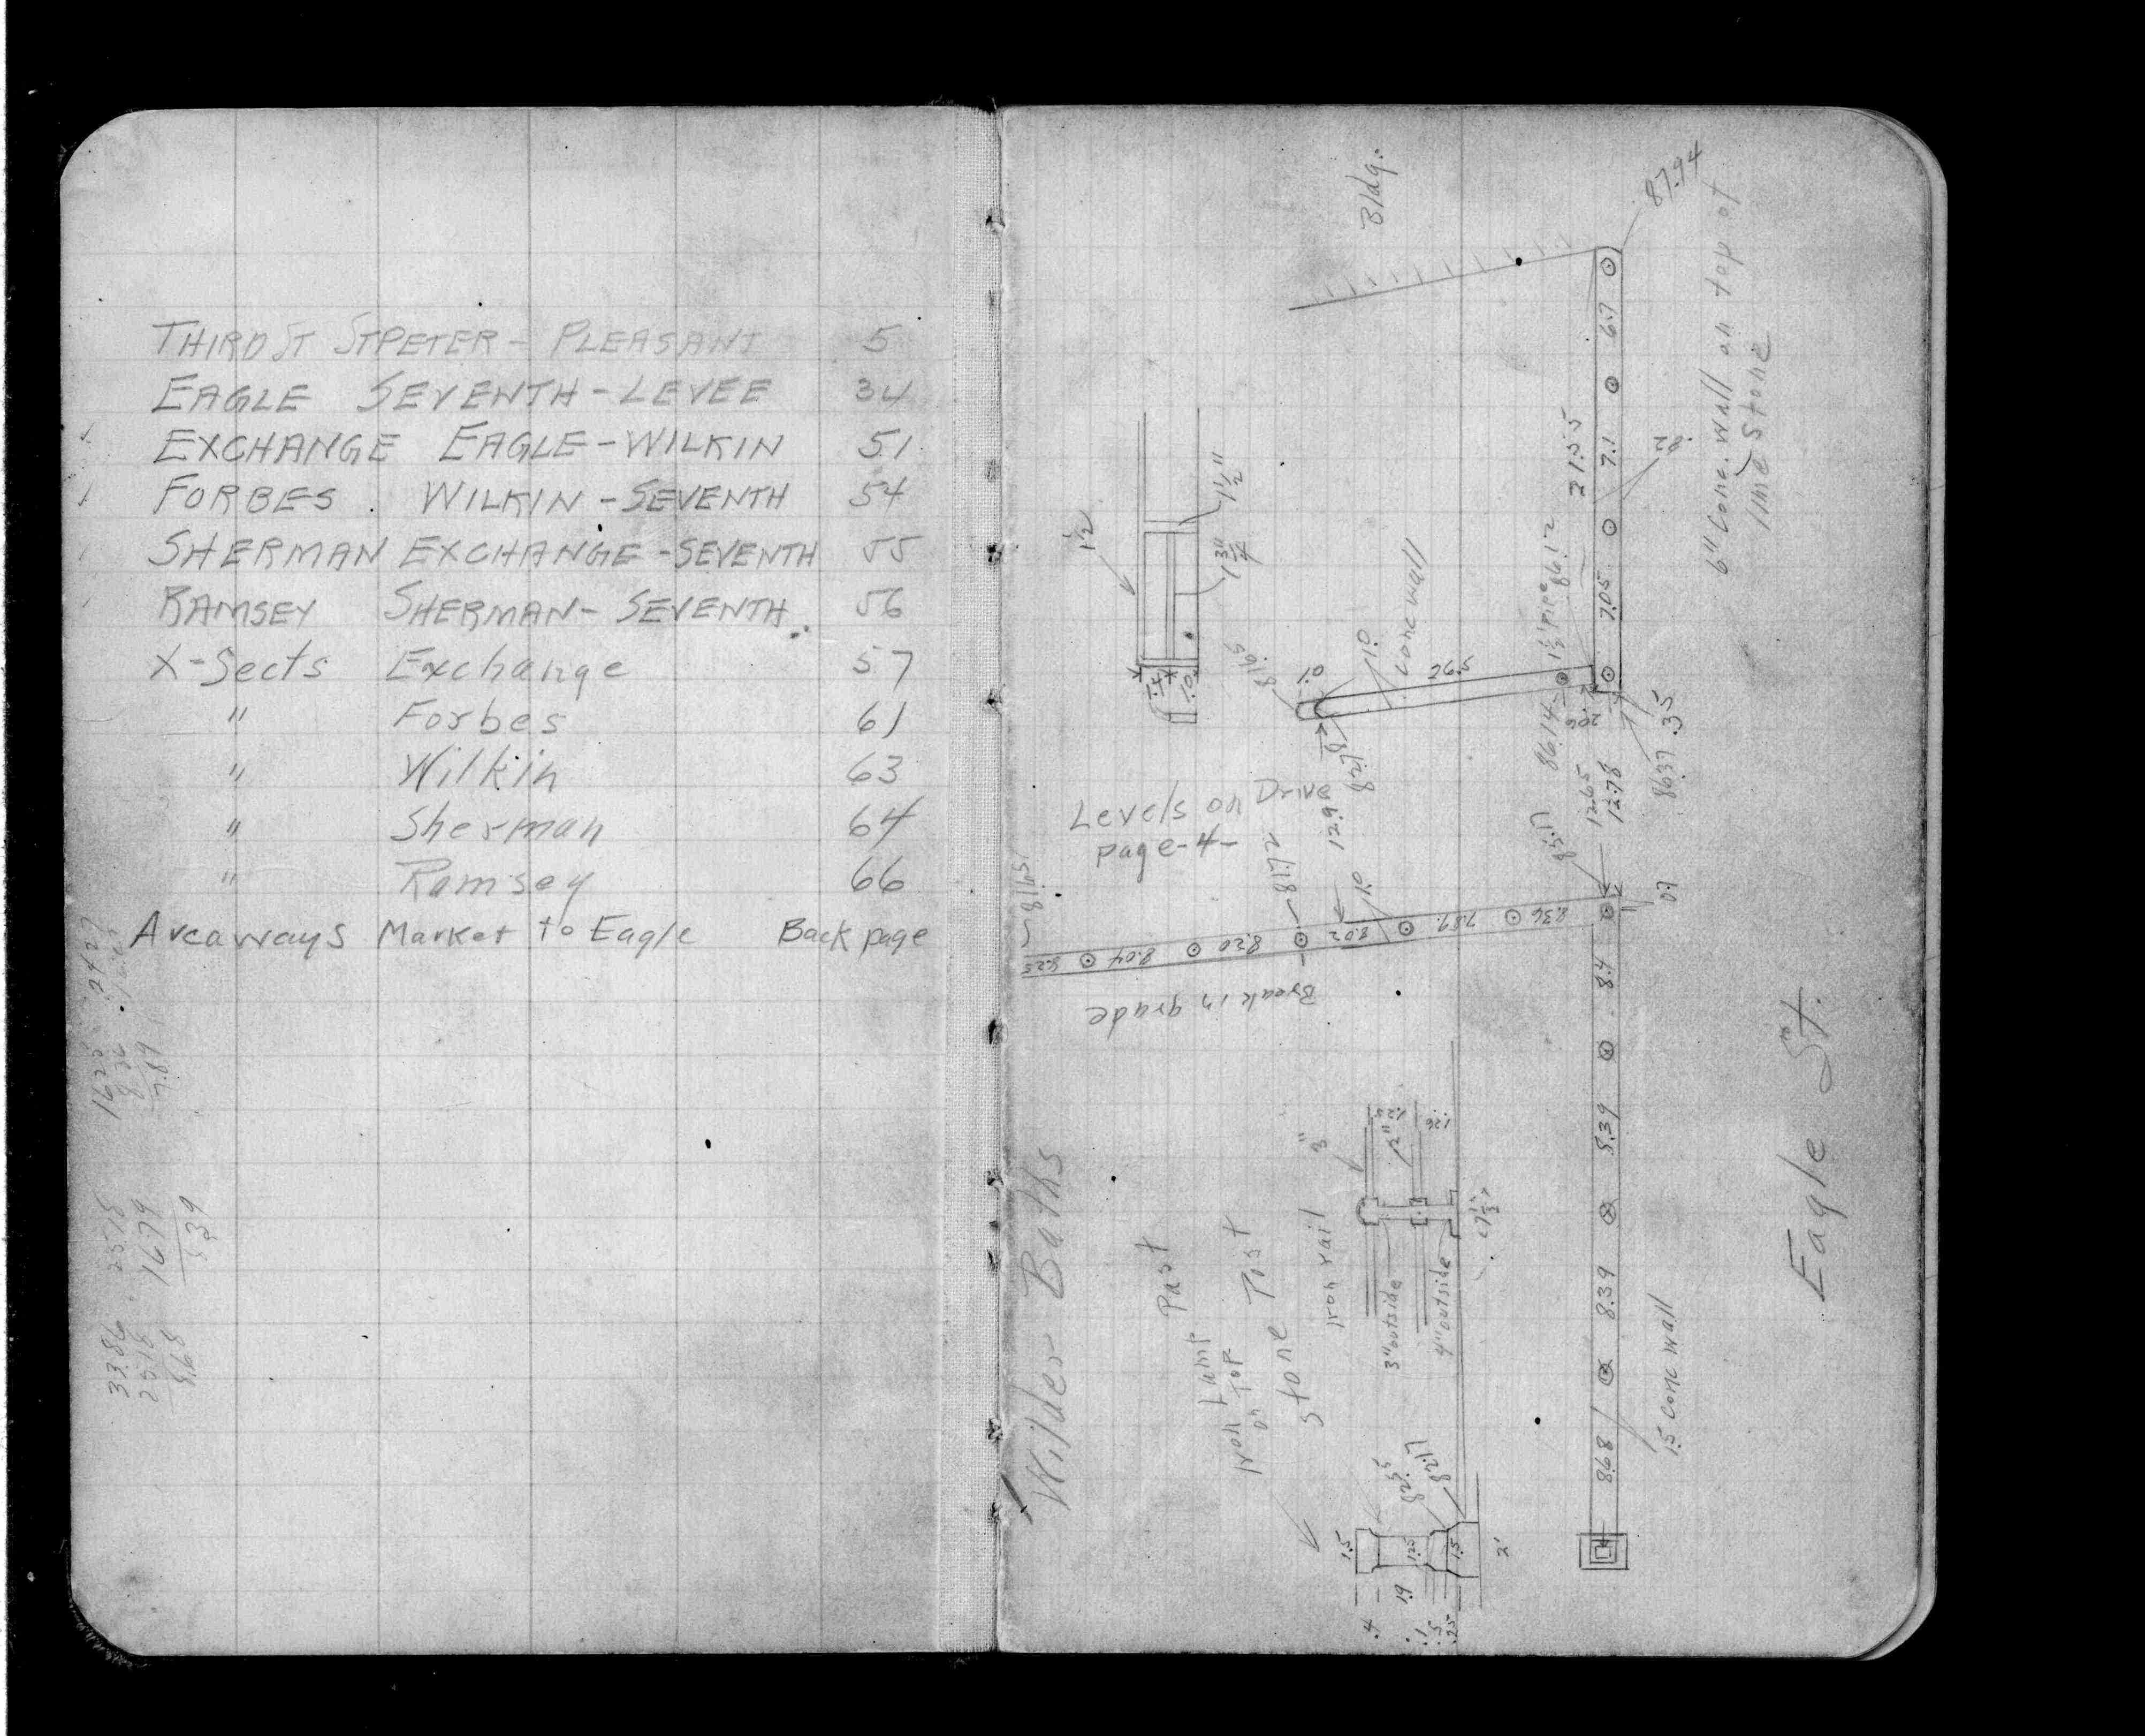 THIRD ST ST PETER - PLEASANT 5
EAGLE SEVENTH - LEVEE 34
EXCHANGE EAGLE - WILKIN 51
FORBES. WILKIN - SEVENTH 54
SHERMAN EXCHANGE - SEVENTH 55
RAMSEY SHERMAN - SEVENTH. 56
X-Sects Exchange 57
" Forbes 61
" Wilkin 63
" Sherman 64
" Ramsey 66
Areaways Market to Eagle Back page
16.25
8.36
7.89
25.18
16.79
8.39
33.86
25.18
8.68
Bldg.
87.94
6" Conc. wall on top of
lime stone
6.7
7.1
7.05
21.55
.82
1½" pipe
86.12
86.14
1½
1½"
1¾"
81.65
1.0
1.0
conc wall
26.5
12.65
12.78
86.37
.35
Levels on Drive
page -4-
12.9
82.17
81.72
81.65
85.17
0.7
1.0
8.25
8.04
8.20
8.02
7.89
8.36
Break in grade
8.4
8.39
8.39
8.68
1.5 conc wall
Eagle St.
Wilder Baths
Iron Lamp Post
on top
Stone Post
Iron rail
3"
2"
1.26
3" outside
4" outside
1.5
1.25
1.5
2'
.4
1.9
.1
.5
.25
82.17